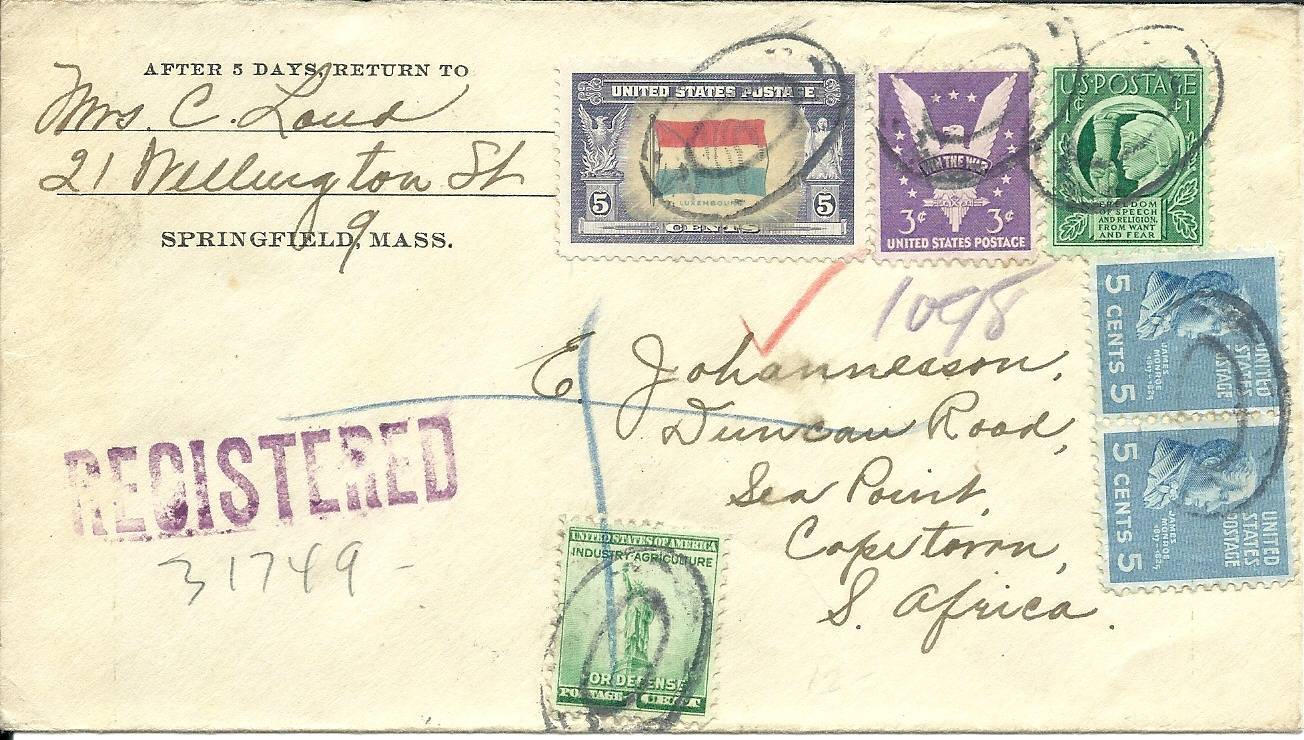 AFTER 5 DAYS, RETURN TO
Mrs. C. Loud
21 Wellington St
9
SPRINGFIELD, MASS.
UNITED STATES POSTAGE
LUXEMBOURG
5 5
CENTS
WIN THE WAR
3¢ 3¢
UNITED STATES POSTAGE
U.S. POSTAGE
1¢ ¢1
FREEDOM
OF SPEECH
AND RELIGION,
FROM WANT
AND FEAR
1098
5 CENTS 5
JAMES
MONROE
1817-1825
UNITED
STATES
POSTAGE
5 CENTS 5
JAMES
MONROE
1817-1825
UNITED
STATES
POSTAGE
E. Johannesson,
Duncan Road,
Sea Point,
Capetown,
S. Africa.
REGISTERED
31749 -
UNITED STATES OF AMERICA
INDUSTRY·AGRICULTURE
FOR DEFENSE
POSTAGE 1 CENT
12-